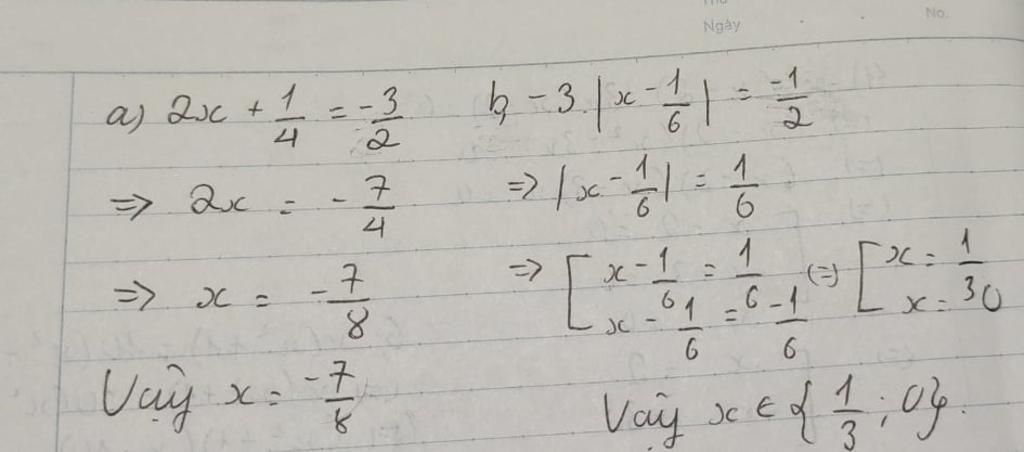 Ngày
No.
a) 2x + 1/4 = -3/2
⇒ 2x = -7/4
⇒ x = -7/8
Vậy x = -7/8
b, -3.|x - 1/6| = -1/2
⇒ |x - 1/6| = 1/6
⇒ [ x - 1/6 = 1/6 (=) [ x = 1/3
x - 1/6 = -1/6 x = 0
Vậy x ∈ {1/3; 0}.